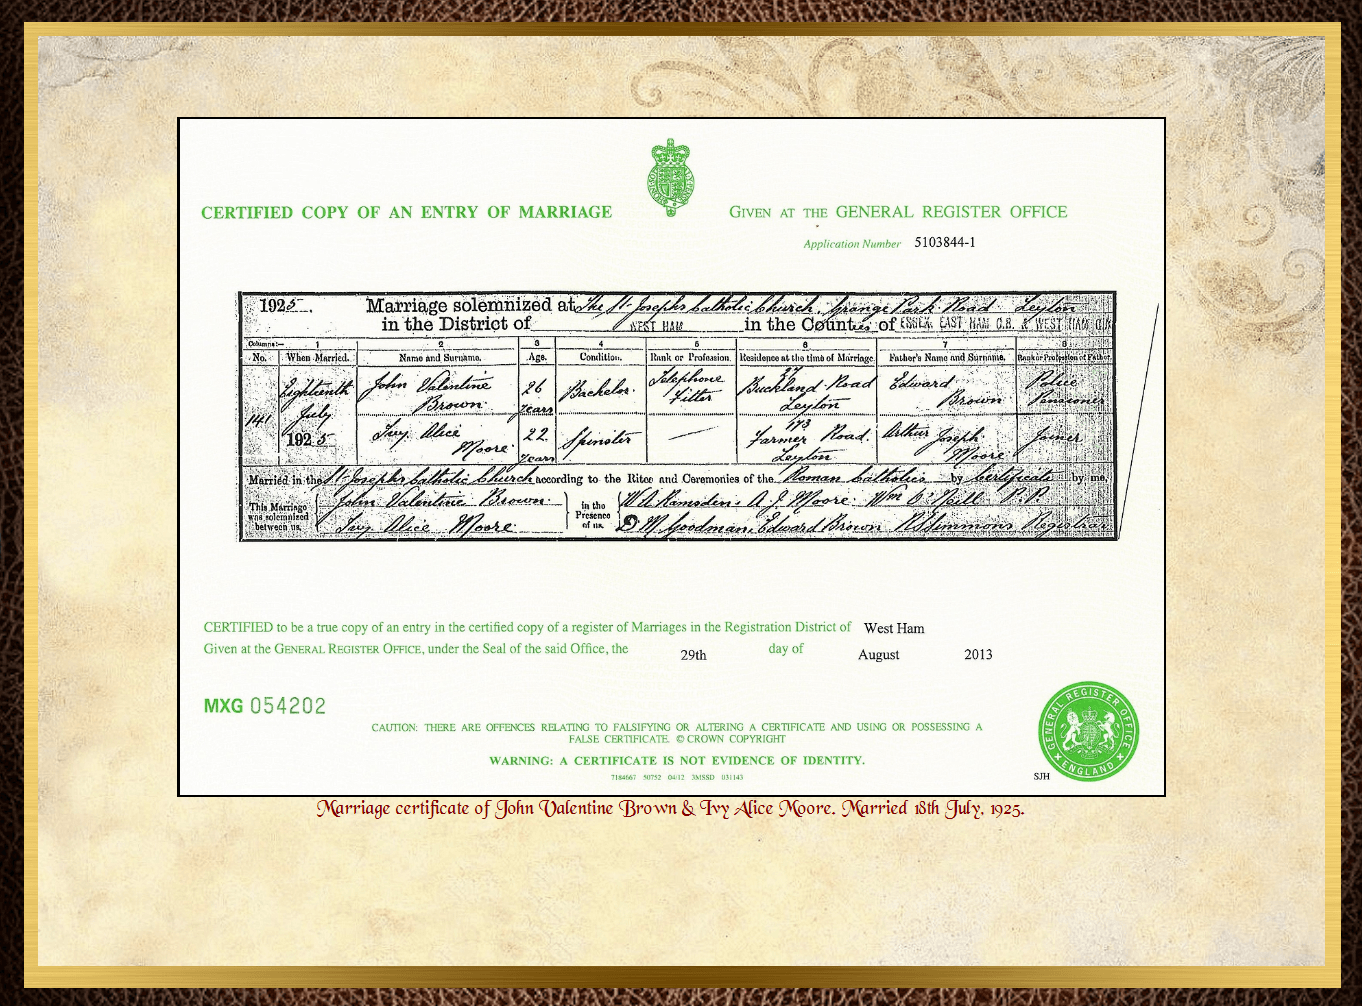 CERTIFIED COPY OF AN ENTRY OF MARRIAGE
GIVEN AT THE GENERAL REGISTER OFFICE
Application Number 5103844-1
1925. Marriage solemnized at The St. Josephs Catholic Church, Grange Park Road Leyton
in the District of WEST HAM in the Counties of ESSEX, EAST HAM C.B. & WEST HAM C.B.
Columns:— 1 2 3 4 5 6 7 8
No. When Married. Name and Surname. Age. Condition. Rank or Profession. Residence at the time of Marriage. Father's Name and Surname. Rank or Profession of Father.
141 Eighteenth July 1925
John Valentine Brown 26 years Bachelor Telephone Fitter 27 Buckland Road Leyton Edward Brown Police Pensioner
Ivy Alice Moore 22 years Spinster — 173 Farmer Road. Leyton Arthur Joseph Moore Joiner
Married in the St. Josephs Catholic Church according to the Rites and Ceremonies of the Roman Catholics by Certificate by me,
This Marriage was solemnized between us, John Valentine Brown in the Presence of us, W A Ramsden, A. J. Moore. Wm O'Neill P.P.
Ivy Alice Moore D M Goodman, Edward Brown R Simmons Registrar
CERTIFIED to be a true copy of an entry in the certified copy of a register of Marriages in the Registration District of West Ham
Given at the GENERAL REGISTER OFFICE, under the Seal of the said Office, the 29th day of August 2013
MXG 054202
CAUTION: THERE ARE OFFENCES RELATING TO FALSIFYING OR ALTERING A CERTIFICATE AND USING OR POSSESSING A
FALSE CERTIFICATE. © CROWN COPYRIGHT
WARNING: A CERTIFICATE IS NOT EVIDENCE OF IDENTITY.
7184667 50752 04/12 3MSSD 031143
SJH
GENERAL REGISTER OFFICE
ENGLAND
Marriage certificate of John Valentine Brown & Ivy Alice Moore. Married 18th July, 1925.